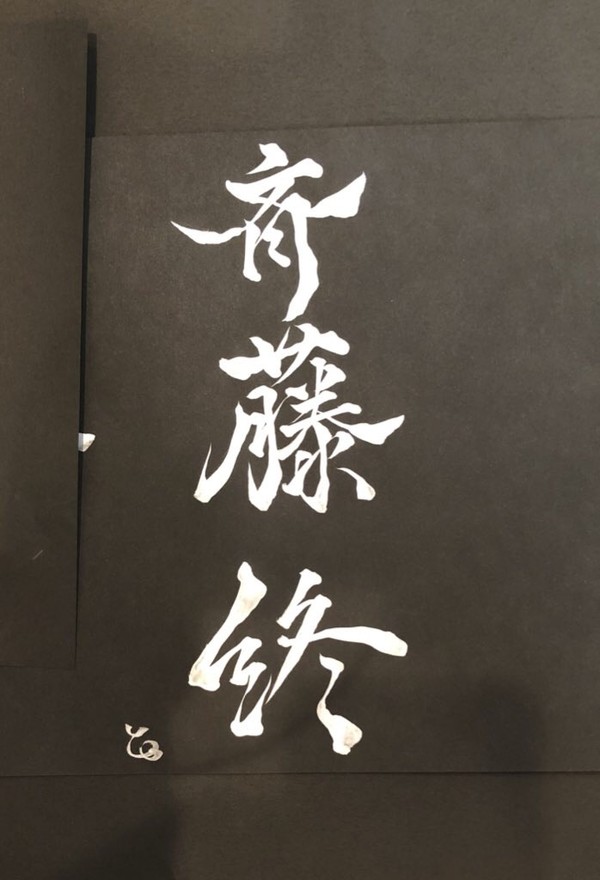 斉藤終